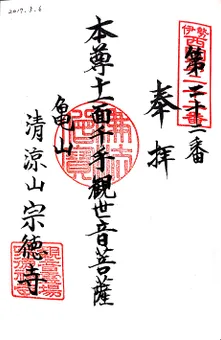 2017.3.6
伊勢西国
第二十二番
奉拝
本尊十一面千手觀世音菩薩
亀山
清涼山宗徳寺